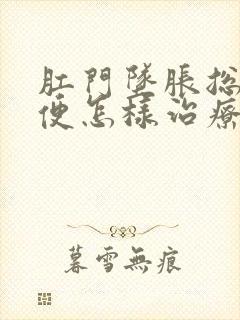 肛門墜脹總
便怎樣治療
暮雪無痕